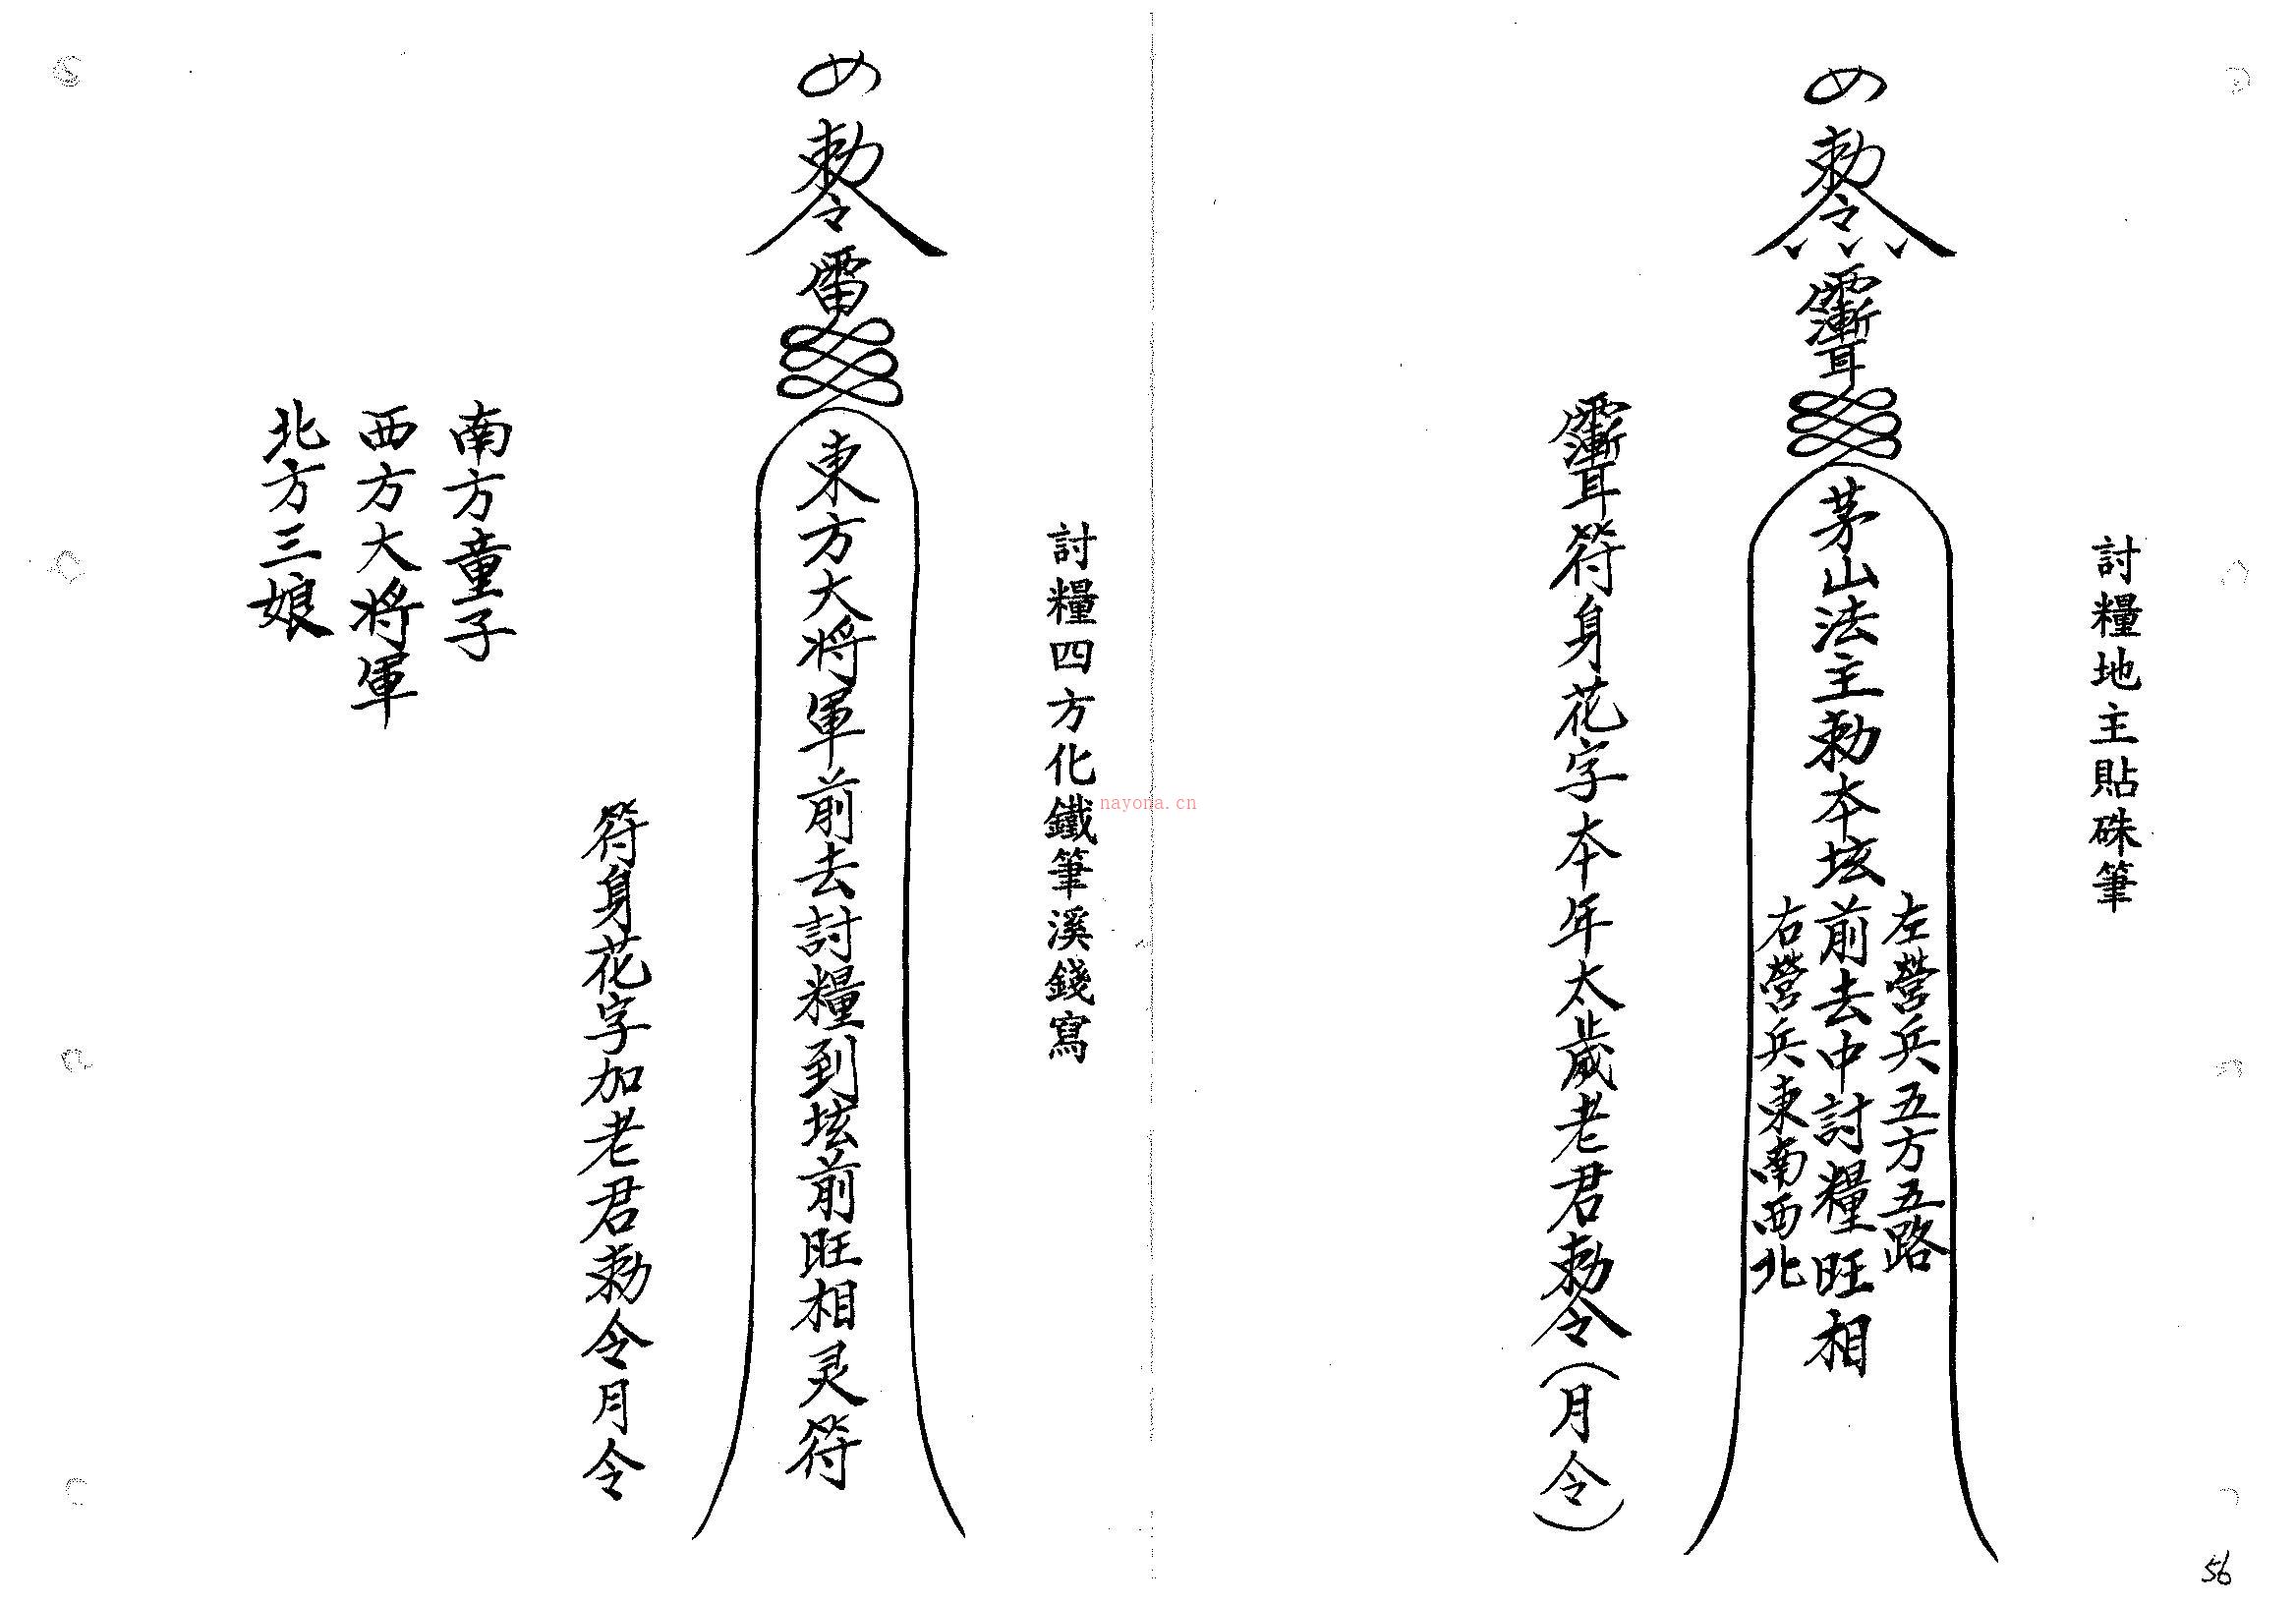 討糧地主貼硃筆
勅令
茅山法主勅本坛前去中討糧旺相
左營兵五方五路
右營兵東南西北
符身花字本年太歲老君勅令(月令)
討糧四方化鐵筆溪錢寫
勅令
雷
東方大将軍前去討糧到坛前旺相灵符
符身花字加老君勅令月令
南方童子
西方大将軍
北方三娘
nayona.cn
56